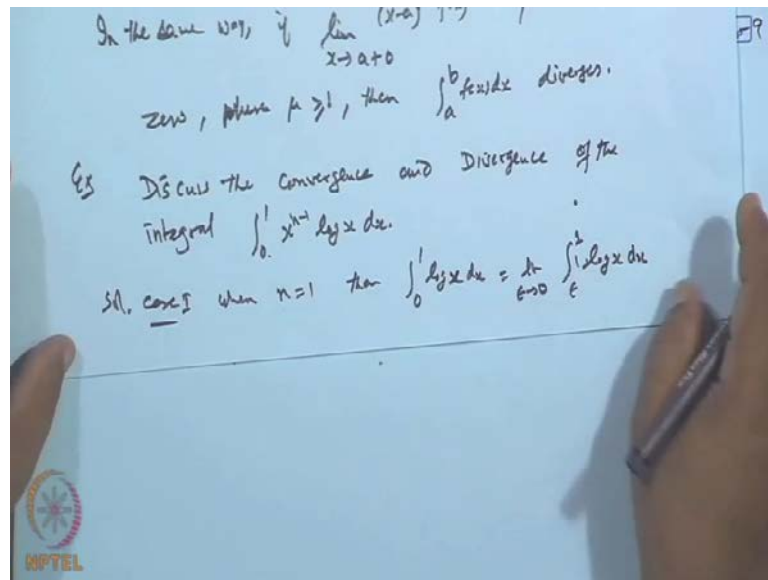 In the same way, if lim (x-a)
x→a+0
zero, where μ ≥ 1, then ∫_a^b f(x) dx diverges.
Ex Discuss the Convergence and Divergence of the
integral ∫_0^1 x^{n-1} log x dx.
Sol. case I when n=1 then ∫_0^1 log x dx = lim_{ε→0} ∫_ε^1 1·log x dx
9
NPTEL